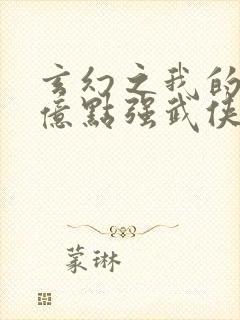 玄幻之我的
億點強武俠
蒙琳